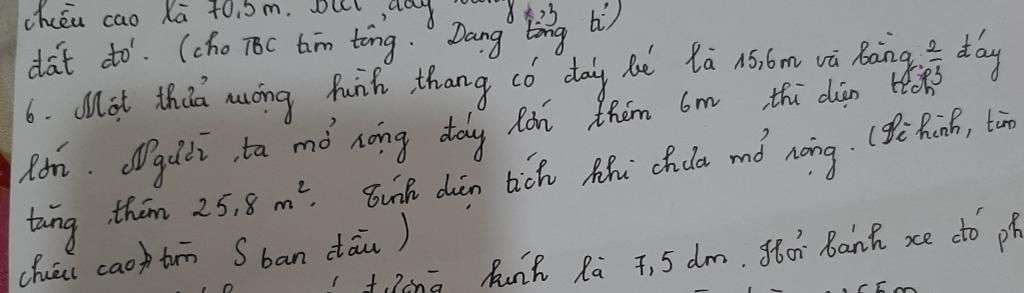 chiều cao là 70,5m. Biết, đáy
đất đó. (cho TBC tìm tổng. Dạng tổng tỉ)
6. Một thửa ruộng hình thang có đáy bé là 15,6m và bằng 2/3 đáy
lớn. Người ta mở rộng đáy lớn thêm 6m thì diện tích
tăng thêm 25,8 m². Tính diện tích khi chưa mở rộng. (Vẽ hình, tìm
chiều cao) tìm S ban đầu)
kính là 7,5 dm. Hỏi bánh xe đó ph